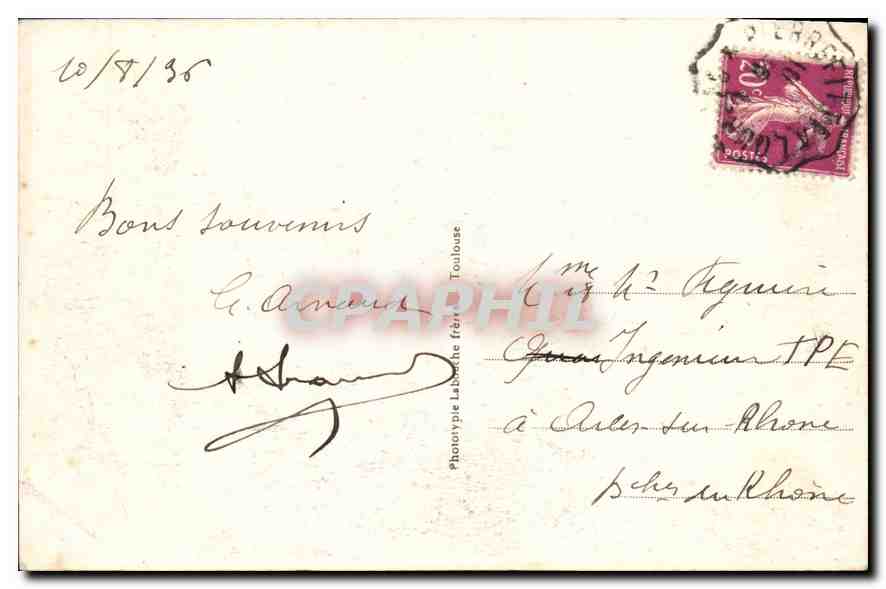 10/8/36
Bons souvenirs
G. Arnaud
Mme et Mr Figuière
Ingenieur TPE
à Arles-sur-Rhone
Bches du Rhône
Phototypie Labouche frères Toulouse
20c
POSTES
REPUBLIQUE FRANÇAISE
CPAPHIL